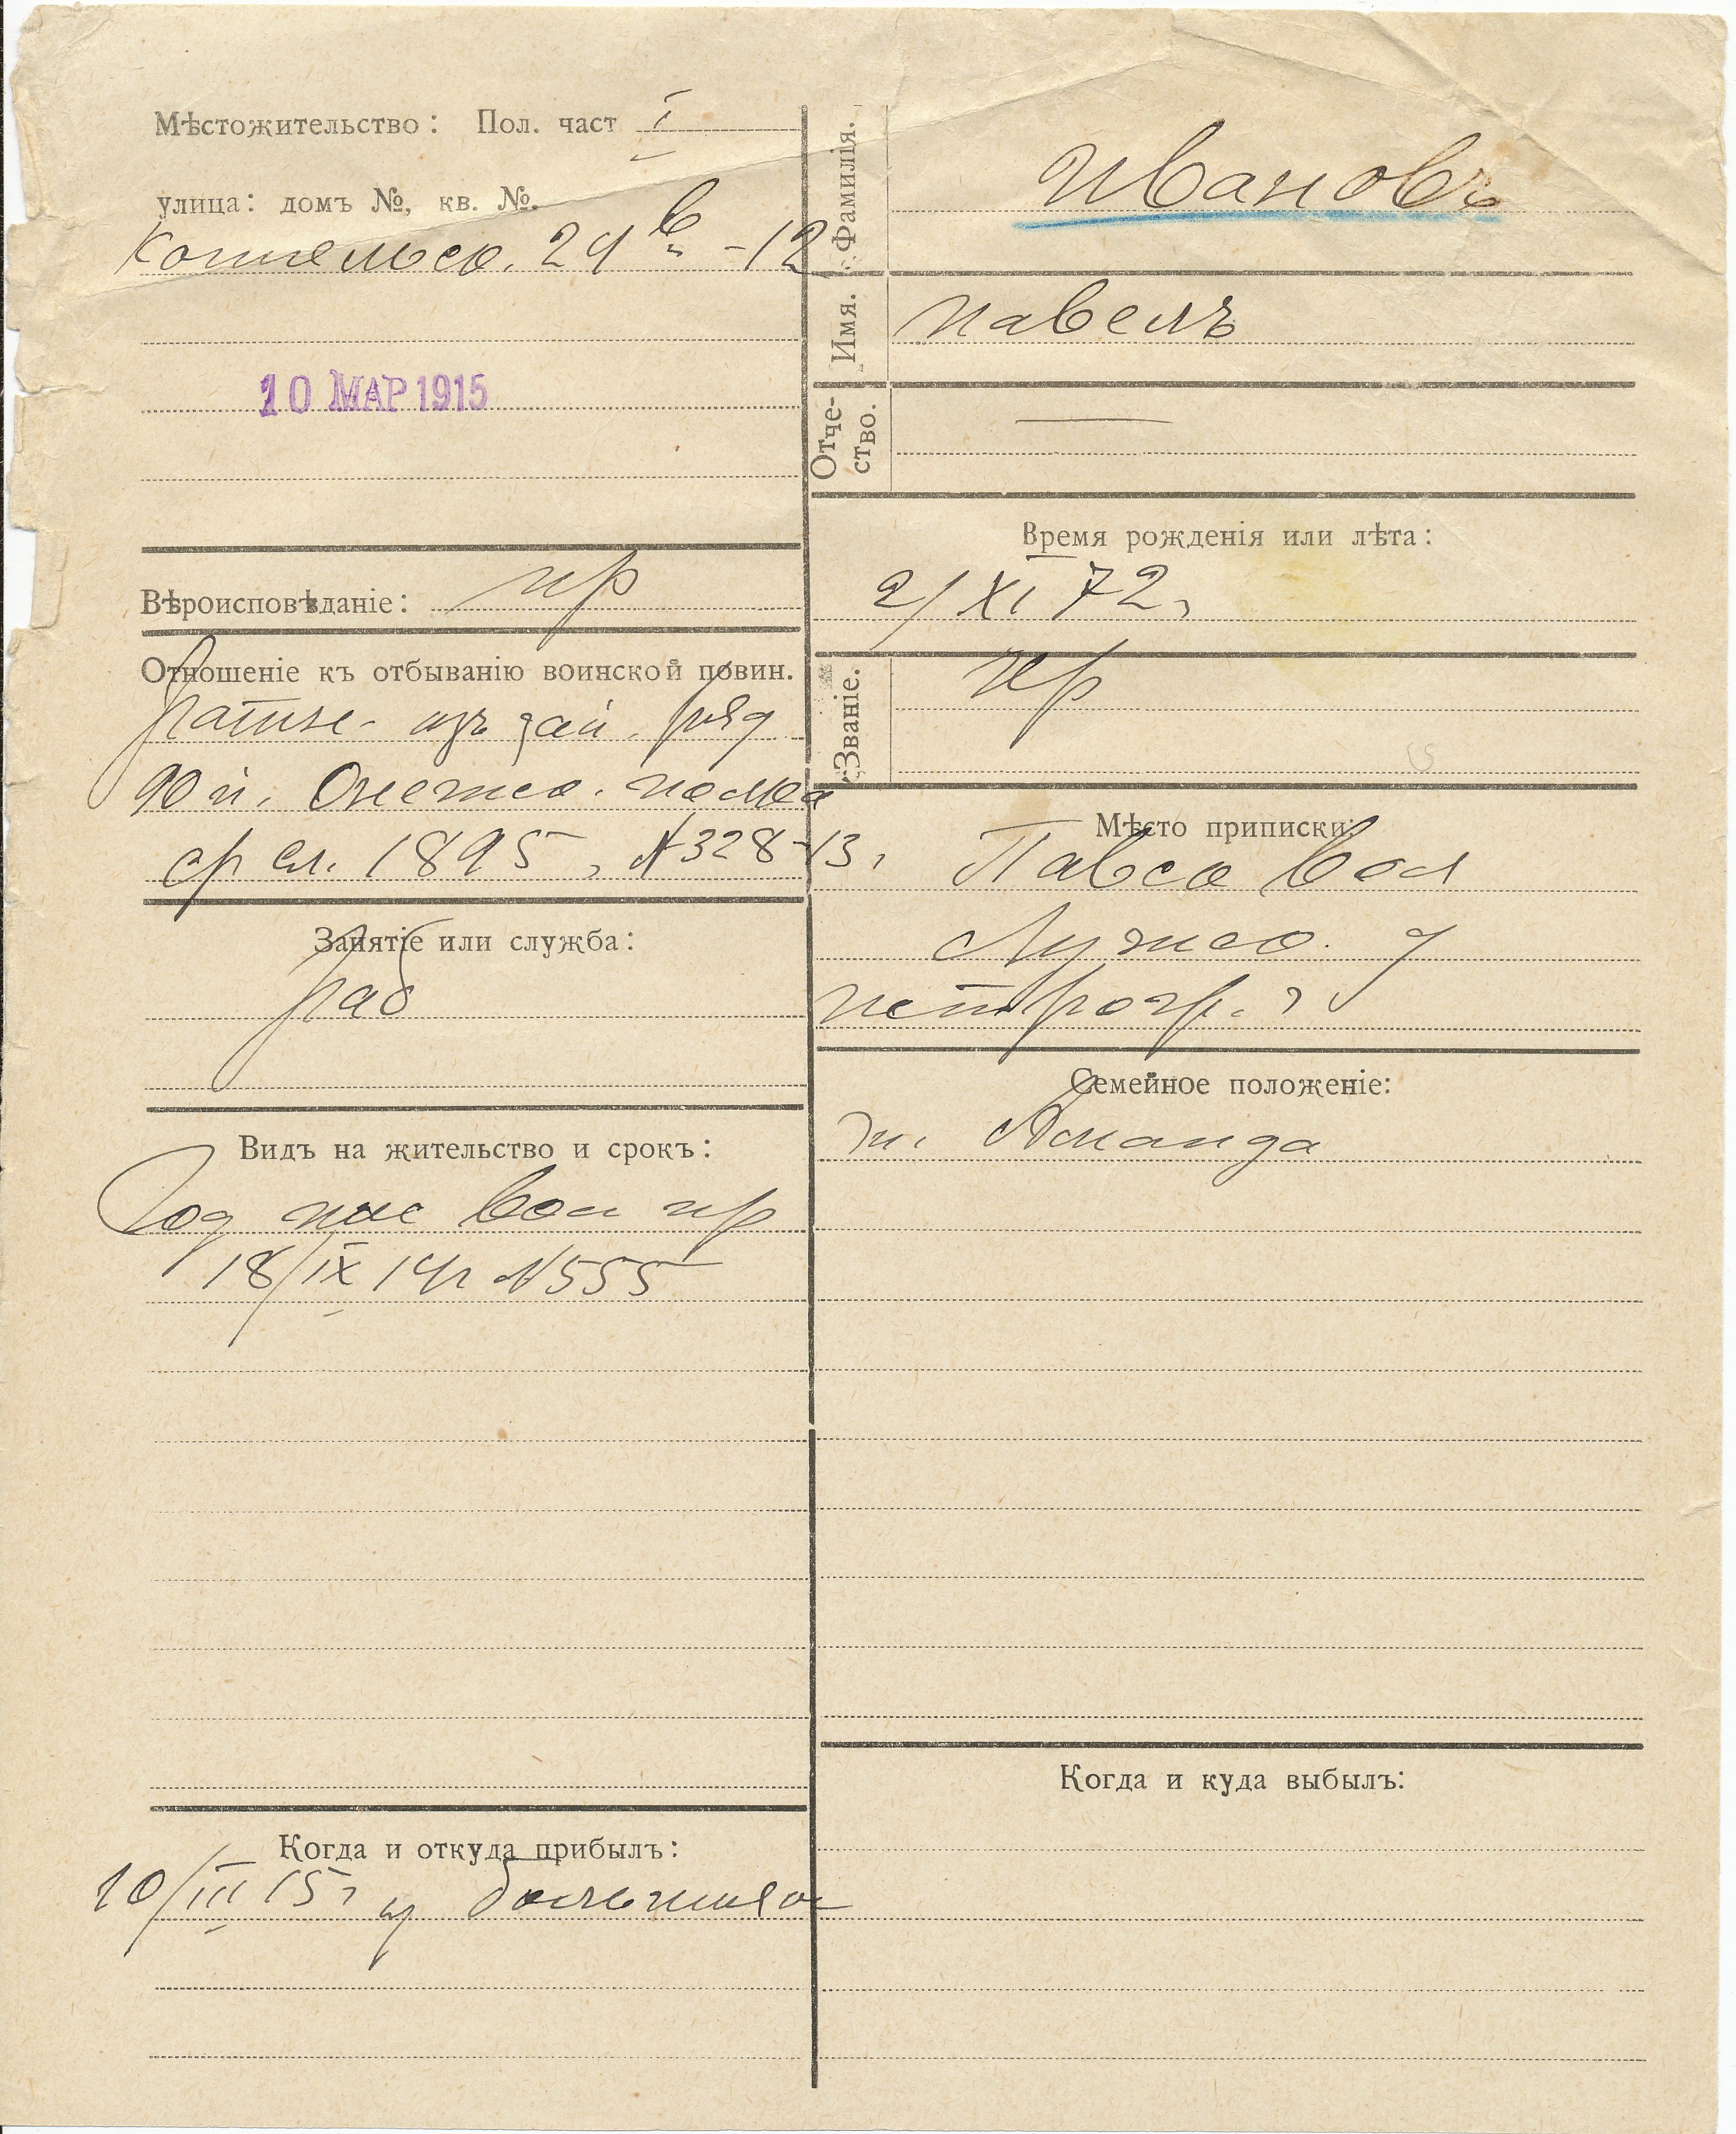 Мѣстожительство: Пол. част I
улица: домъ №, кв. №.
24 в -12
10 МАР 1915
Вѣроисповѣданіе: пр
Отношеніе къ отбыванію воинской повин.
ратн. изъ зап. ряд
90 п. Онежск. полка
ср сл. 1895, № 328-13.
Занятіе или служба:
раб
Видъ на жительство и срокъ:
Год пас вол пр
18/IX 14 г № 555
Когда и откуда прибылъ:
10/III 15 г из больницы
Фамилія. Ивановъ
Имя. Павелъ
Отче-
ство. —
Время рожденія или лѣта:
2/XI 72 г
Званіе. кр
Мѣсто приписки:
Павск вол
Лужск. у
Петрогр. г
Семейное положеніе:
ж. Аманда
Когда и куда выбылъ: